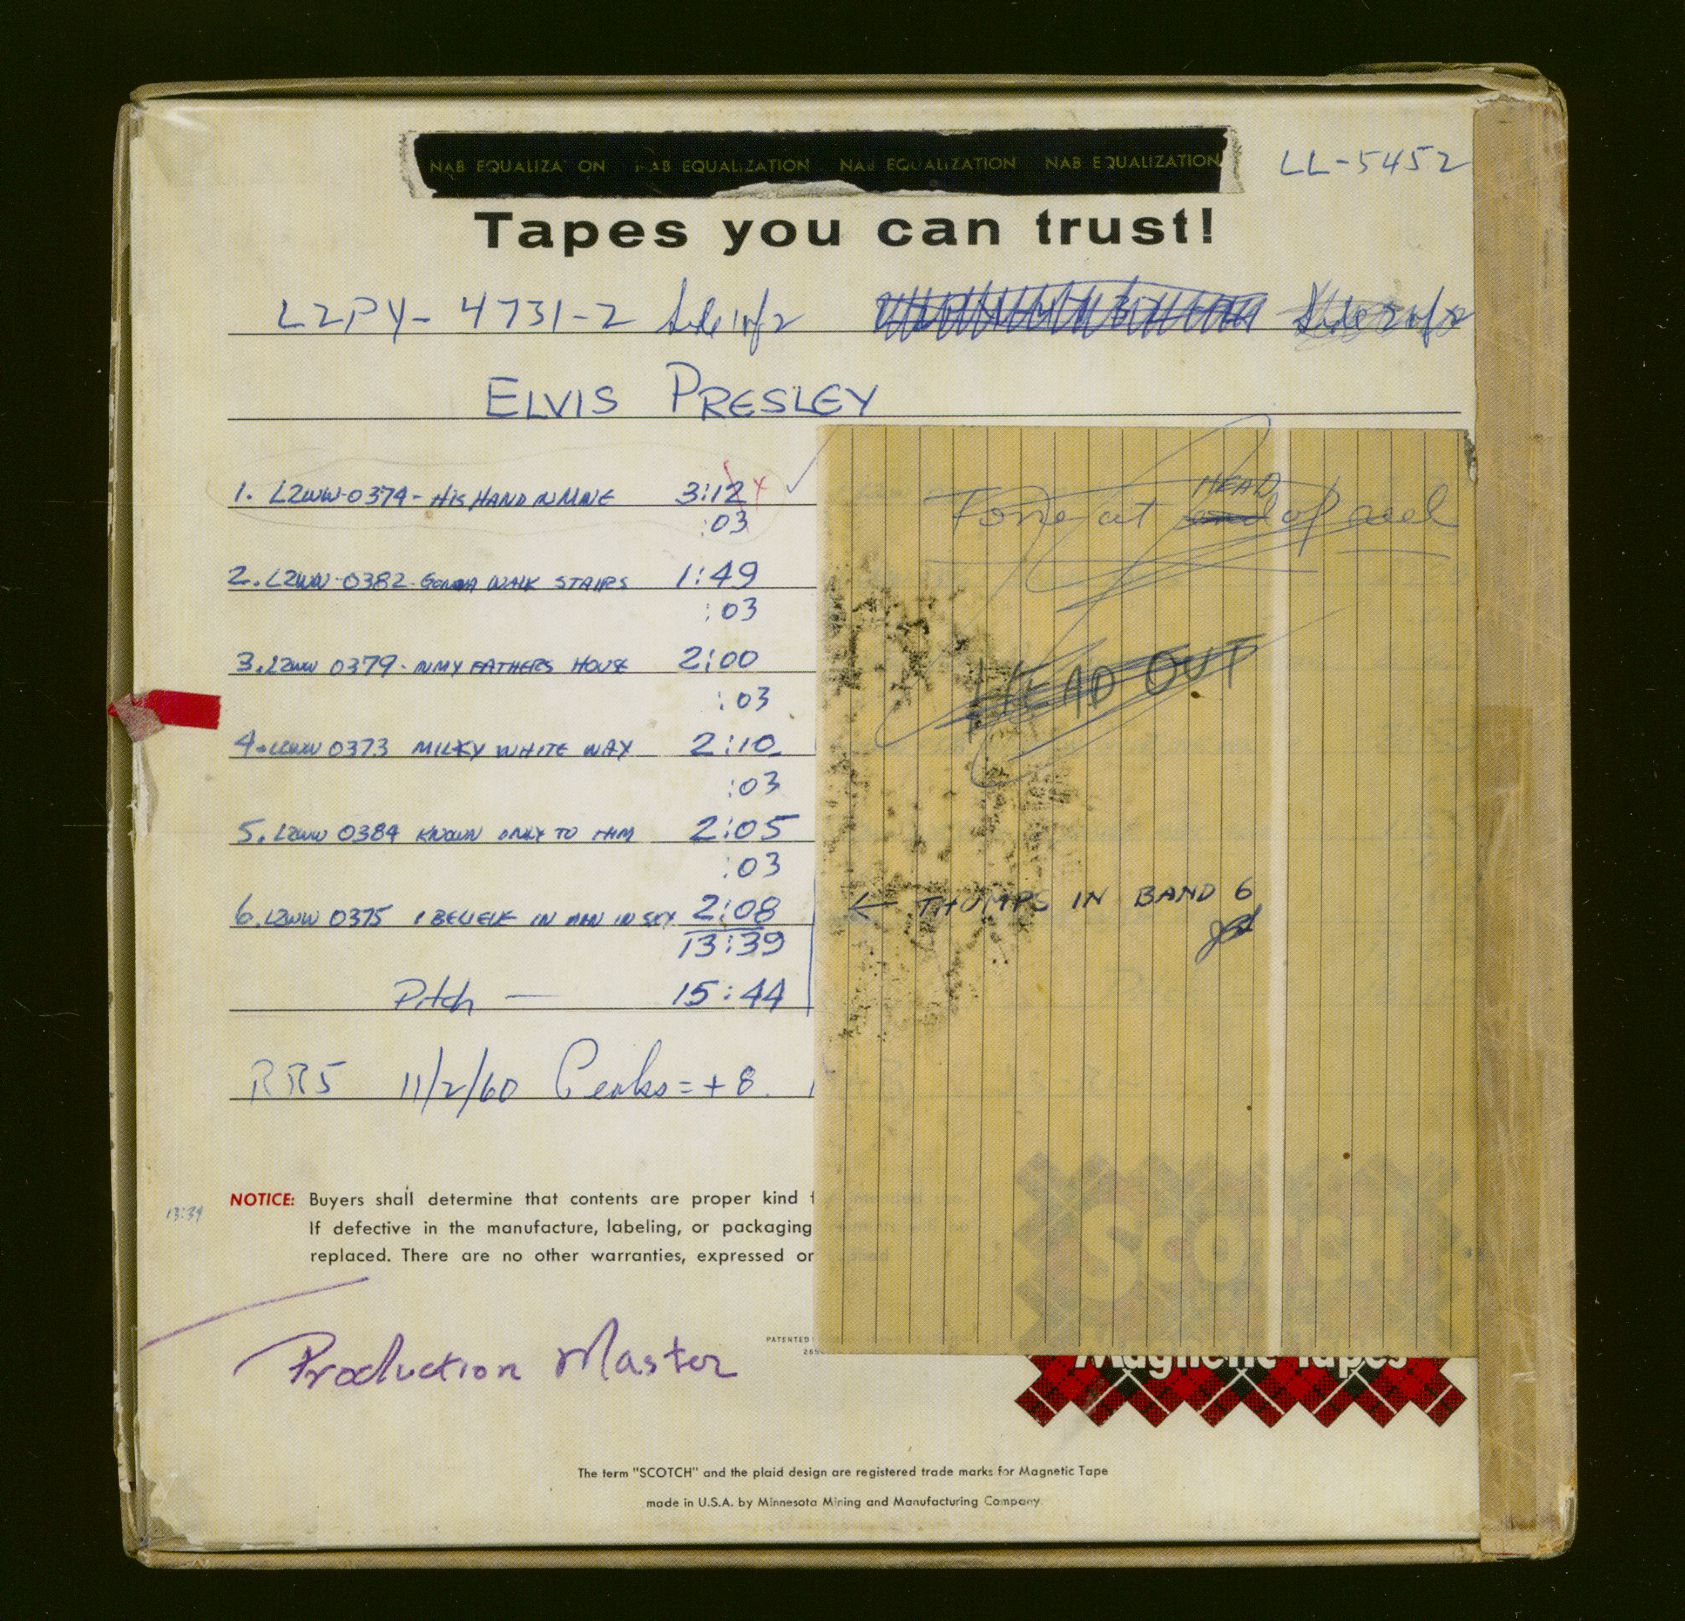 NAB EQUALIZATION NAB EQUALIZATION NAB EQUALIZATION NAB EQUALIZATION
LL-5452
Tapes you can trust!
L2PY- 4731-2 Side 1 of 2 Side 2 of 2
ELVIS PRESLEY
1. L2WW-0374 - HIS HAND IN MINE 3:12
:03
2. L2WW-0382 - GONNA WALK STAIRS 1:49
:03
3. L2WW 0379 - IN MY FATHERS HOUSE 2:00
:03
4. L2WW 0373 MILKY WHITE WAY 2:10
:03
5. L2WW 0384 KNOWN ONLY TO HIM 2:05
:03
6. L2WW 0375 I BELIEVE IN MAN IN SKY 2:08
13:39
Pitch — 15:44
RR5 11/2/60 Peaks = +8
HEAD
Tone at end of reel
HEAD OUT
← THUMPS IN BAND 6
13:39
NOTICE: Buyers shall determine that contents are proper kind
If defective in the manufacture, labeling, or packaging
replaced. There are no other warranties, expressed or
Production Master
PATENTED
SCOTCH
Magnetic Tapes
The term "SCOTCH" and the plaid design are registered trade marks for Magnetic Tape
made in U.S.A. by Minnesota Mining and Manufacturing Company.